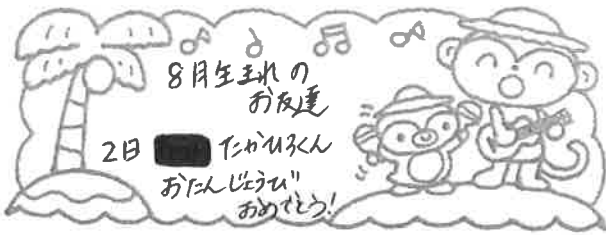 8月生まれの
お友達
2日 たかひろくん
おたんじょうび
おめでとう!